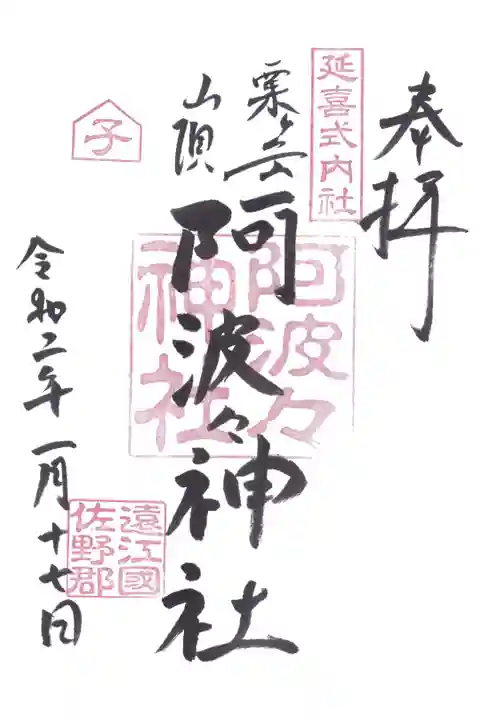 奉拝
延喜式内社
粟ヶ岳
山頂
阿波々神社
阿波々
神社
子
令和二年一月十七日
遠江國
佐野郡